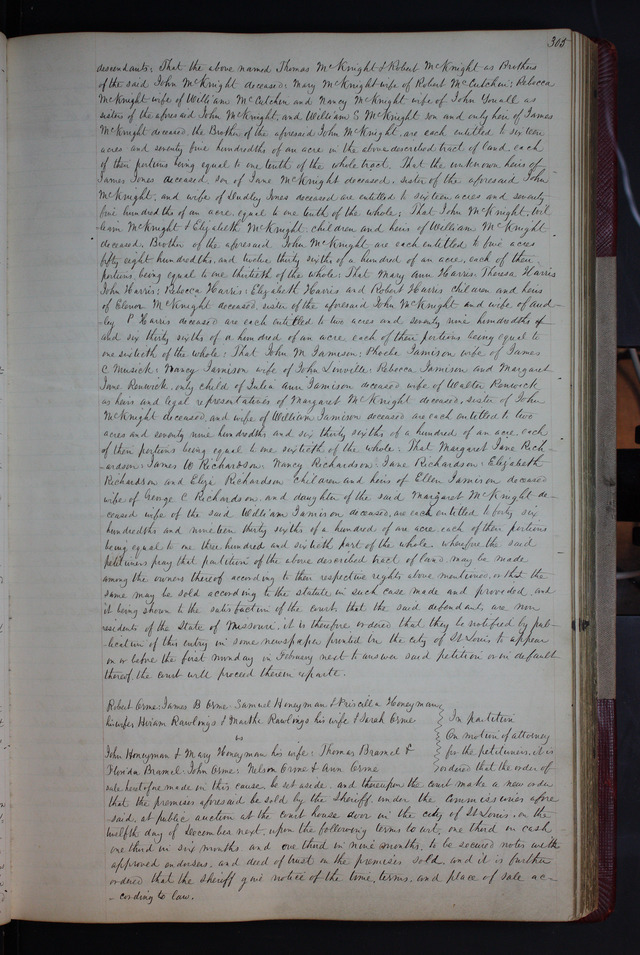 305
descendants; That the above named Thomas McKnight & Robert McKnight as Brothers
of the said John McKnight deceased; Mary McKnight wife of Robert McCutchin; Rebecca
McKnight wife of William McCutchen and Nancy McKnight wife of John Youall as
sisters of the aforesaid John McKnight, and William S McKnight son and only heir of James
McKnight deceased, the Brother of the aforesaid John McKnight, are each entitled to sixteen
acres and seventy five hundredths of an acre in the above described tract of land, each
of their portions being equal to one tenth of the whole tract. That the unknown heirs of
James Jones deceased, son of Jane McKnight deceased, sister of the aforesaid John
McKnight, and wife of Dudley Jones deceased are entitled to sixteen acres and seventy
five hundredths of an acre, equal to one tenth of the whole; That John McKnight, Wil-
liam McKnight & Elizabeth McKnight, children and heirs of William McKnight
deceased, Brother of the aforesaid John McKnight are each entitled to five acres
fifty eight hundredths, and twelve thirty sixths of a hundred of an acre, each of their
portions being equal to one thirtieth of the whole: That Mary Ann Harris: Theresa Harris
John Harris; Rebecca Harris: Elizabeth Harris and Robert Harris children and heirs
of Elenor McKnight deceased, sister of the aforesaid John McKnight and wife of Aud-
ley P Harris deceased are each entitled to two acres and seventy nine hundredths of
and six thirty sixths of a hundred of an acre each of their portions being equal to
one sixtieth of the whole: That John M Jamison: Phoebe Jamison wife of James
C Musick: Nancy Jamison wife of John Linville: Rebecca Jamison and Margaret
Jane Renwick, only child of Julia Ann Jamison deceased wife of Walter Renwick
as heirs and legal representatives of Margaret McKnight deceased, sister of John
McKnight deceased, and wife of William Jamison deceased are each entitled to two
acres and seventy nine hundredths and six thirty sixths of a hundred of an acre, each
of their portions being equal to one sixtieth of the whole. That Margaret Jane Rich-
ardson: James W Richardson: Nancy Richardson: Jane Richardson: Elizabeth
Richardson and Eliza Richardson children and heirs of Ellen Jamison deceased
wife of George C Richardson, and daughter of the said Margaret McKnight de-
ceased wife of the said William Jamison deceased, are each entitled to forty six
hundredths and nineteen thirty sixths of a hundred of are acre, each of their portions
being equal to one three hundred and sixtieth part of the whole. wherefore the said
petitioners pray that partition of the above described tract of land may be made
among the owners thereof according to their respective rights above mentioned, or that the
same may be sold according to the statute in such case made and provided, and
it being shown to the satisfaction of the court that the said defendants are non
residents of the State of Missouri; it is therefore ordered that they be notified by pub-
lication of this entry in some newspaper printed in the city of St Louis to appear
on or before the first monday in February next to answer said petition or in default
thereof, the court will proceed therein exparte.
Robert Orme: James B Orme: Samuel Honeyman & Priscilla Honeyman
his wife: Hiram Rawlings & Martha Rawlings his wife & Sarah Orme
vs
John Honeyman & Mary Honeyman his wife: Thomas Bramel &
Florida Bramel: John Orme: Nelson Orme & Ann Orme
In partition
On motion of attorney
for the petitioners, it is
ordered that the order of
sale heretofore made in this cause, be set aside. and thereupon the court make a new order
that the premises aforesaid be sold by the Sheriff, under the commissioners afore
said, at public auction at the court house door in the city of St Louis, on the
twelfth day of December next, upon the following terms to wit, one third in cash
one third in six months and one third in nine months, to be secured notes with
approved endorsers, and deed of trust on the premises sold, and it is further
ordered that the sheriff give notice of the time, terms, and place of sale ac-
cording to law.